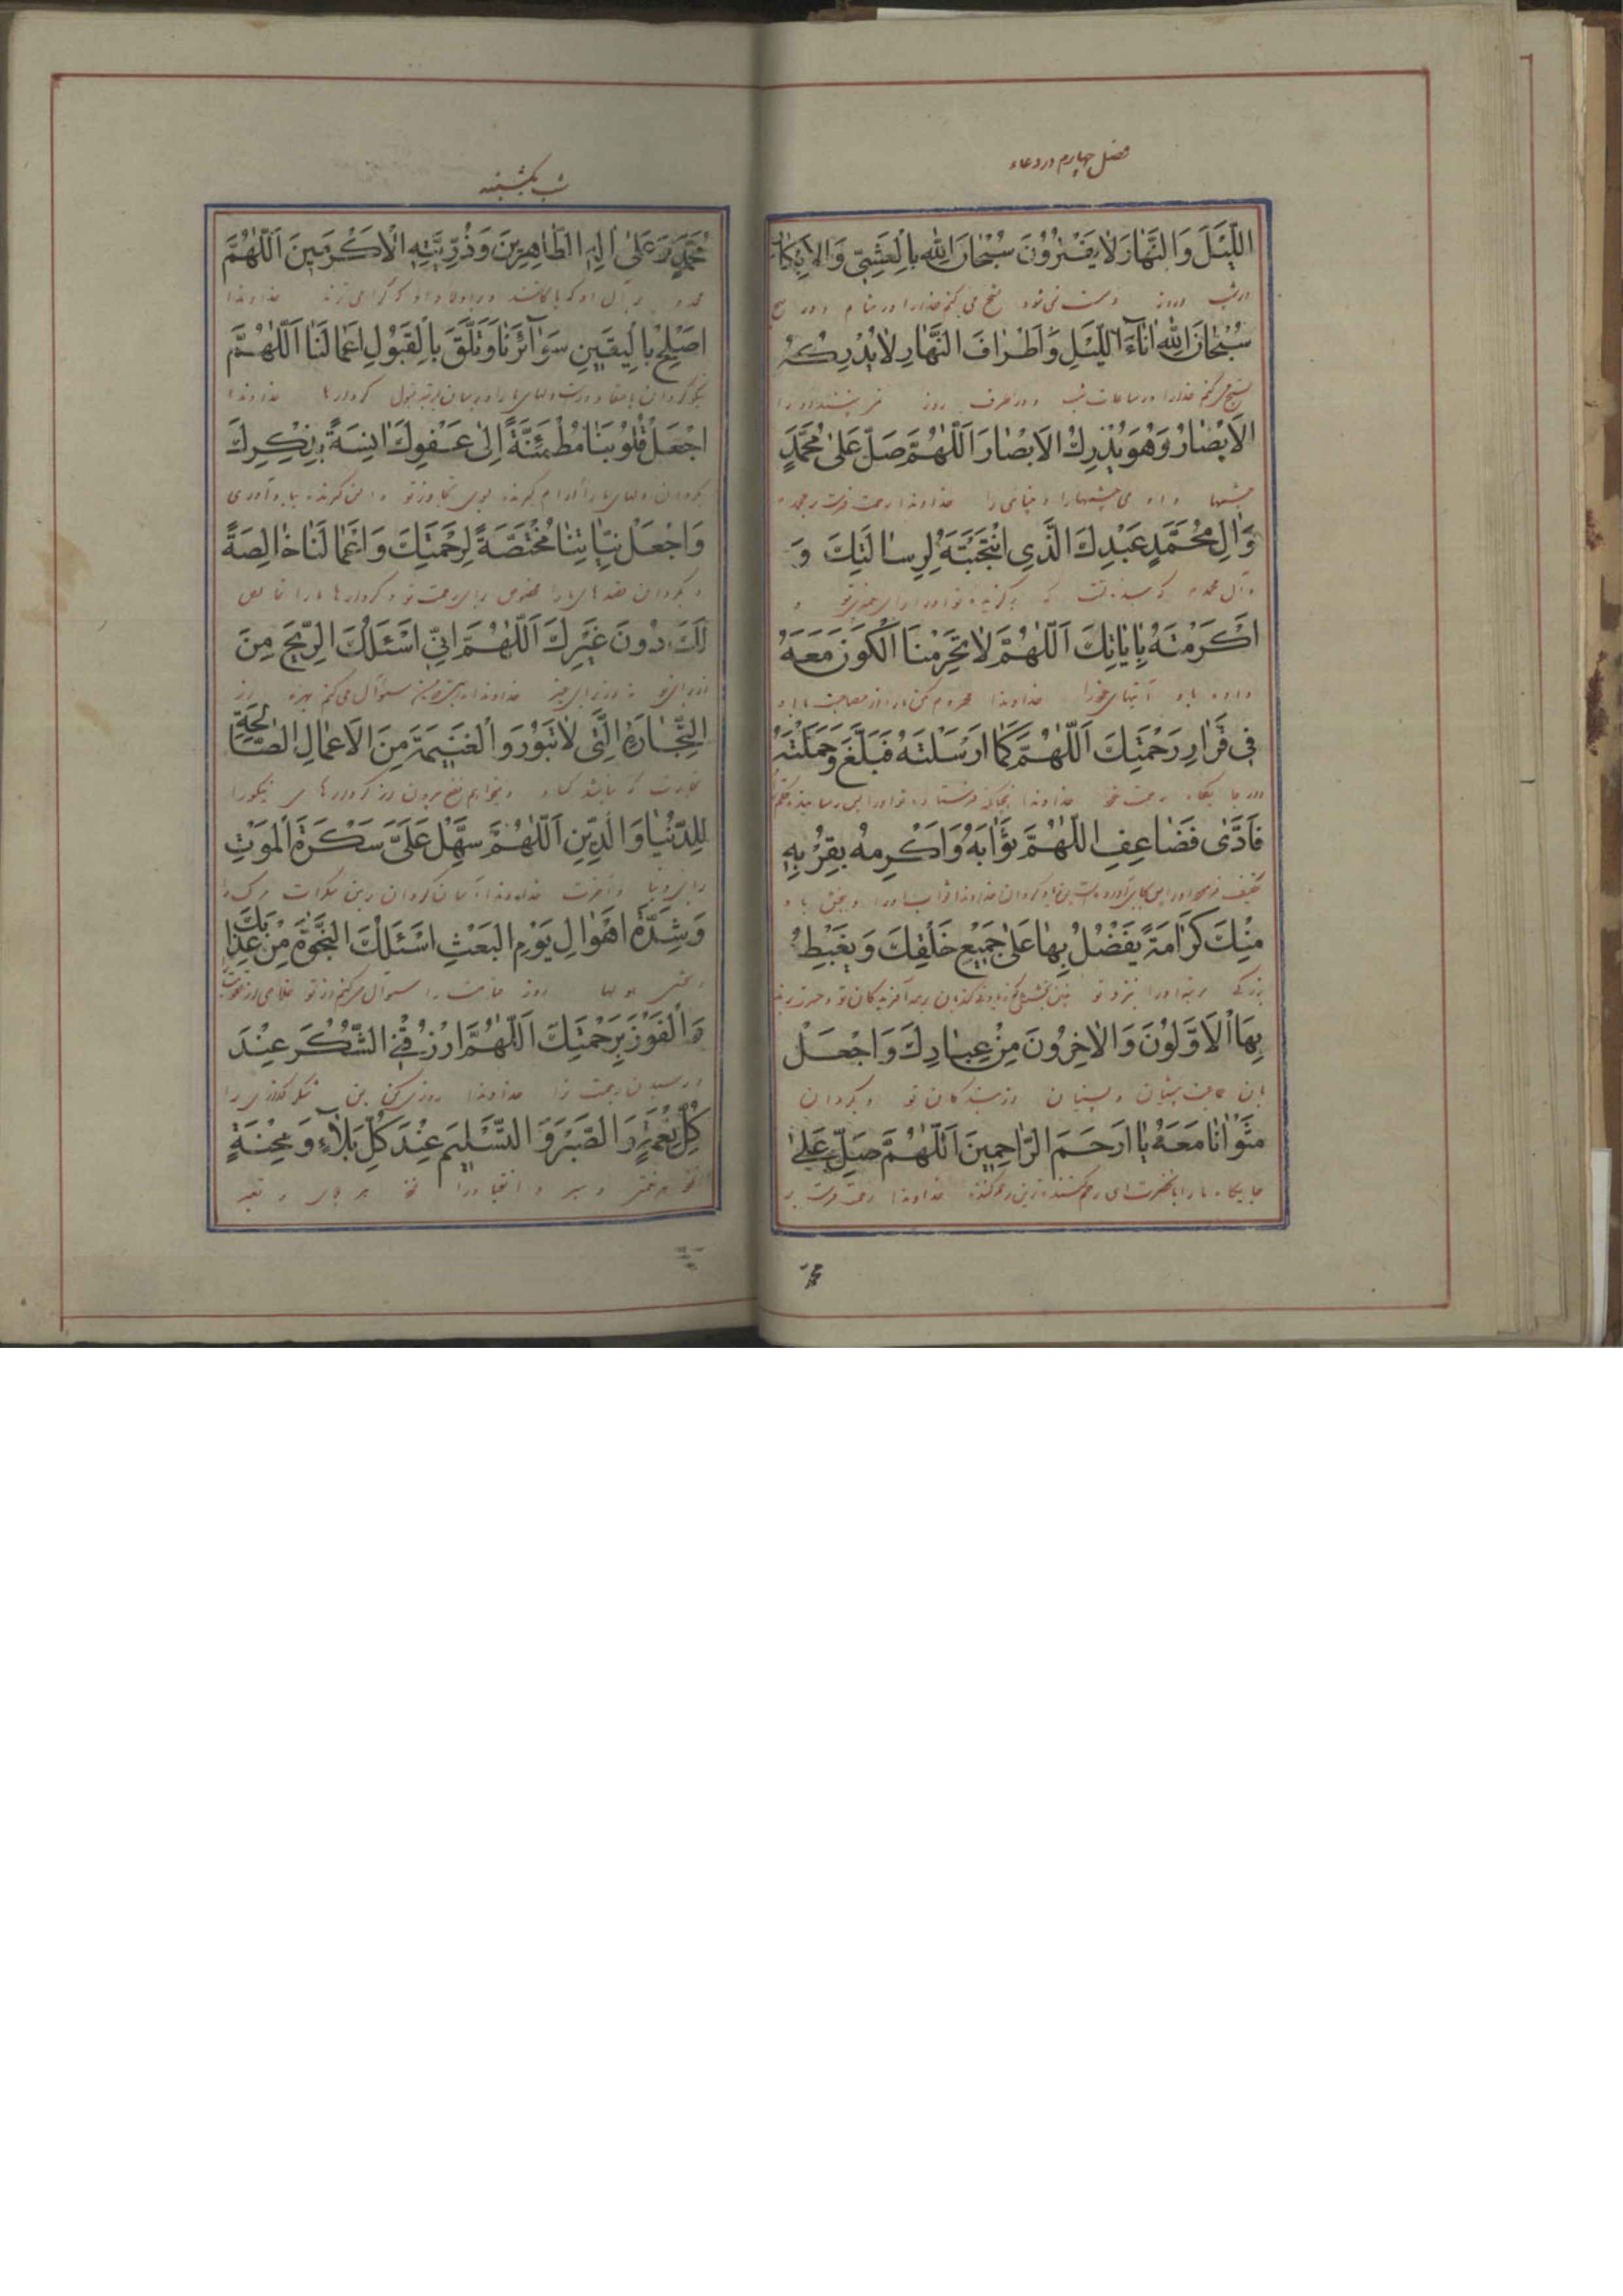 فصل چهارم در دعاء
اللَّيْلَ وَالنَّهارَ لا يَفْتُرُونَ سُبْحانَ اللهِ بِالْعَشِيِّ وَالْاِبْكارِ
در شب و روز و سست نمی شود تسبیح می کنم خدا را در شام و در صبح
سُبْحانَ اللهِ اناءَ اللَّيْلِ وَاَطْرافَ النَّهارِ لا يُدْرِكُهُ
تسبیح میکنم خدا را در ساعات شب و در طرف روز نمی بیند او را
الْاَبْصارُ وَهُوَ يُدْرِكُ الْاَبْصارَ اَللّهُمَّ صَلِّ عَلى مُحَمَّدٍ
چشمها و او می چشمها را و بینای را خداوندا رحمت فرست بر محمد
وَالِ مُحَمَّدٍ عَبْدِكَ الَّذِي انْتَجَبْتَهُ لِرِسالَتِكَ وَ
و آل محمد که بنده تست که برگزیده تو او را برای پیغمبری تو و
اَكْرَمْتَهُ بِاياتِكَ اَللّهُمَّ لا تَحْرِمْنَا الْكَوْنَ مَعَهُ
داده باو آیتهای خود را خداوندا محروم مکن ما را از مصاحبت با او
في قَرارِ رَحْمَتِكَ اَللّهُمَّ كَما اَرْسَلْتَهُ فَبَلَّغَ وَحَمَّلْتَهُ
در جایگاه رحمت خود خداوندا چنانکه فرستاده تو او را پس رسانید
فَاَدّى فَضاعِفِ اللّهُمَّ ثَوابَهُ وَاَكْرِمْهُ بِقُرْبِهِ
خداوندا ثواب او را و ببخش باو
مِنْكَ كَرامَةً يَفْضُلُ بِها عَلى جَميعِ خَلْقِكَ وَيَغْبِطُهُ
بزرگی مرتبه او را بنزد تو آفریدگان تو
بِهَا الْاَوَّلُونَ وَالْاخِرُونَ مِنْ عِبادِكَ وَاجْعَلْ
پیشینیان و پسینیان از بندگان تو و بگردان
مَثْوانا مَعَهُ يا اَرْحَمَ الرّاحِمينَ اَللّهُمَّ صَلِّ عَلى
جایگاه ما را با آنحضرت ای رحم کننده ترین رحم کننده خداوندا رحمت فرست بر
شب یکشنبه
مُحَمَّدٍ وَعَلى الِهِ الطّاهِرينَ وَذُرِّيَّتِهِ الْاَكْرَمينَ اَللّهُمَّ
محمد و بر آل او که پاکانند و بر اولاد او که گرامی ترند خداوندا
اَصْلِحْ بِالْيَقينِ سَرائِرَنا وَتَلَقَّ بِالْقَبُولِ اَعْمالَنا اَللّهُمَّ
قبول کردارها خداوندا
اجْعَلْ قُلُوبَنا مُطْمَئِنَّةً اِلى عَفْوِكَ انِسَةً بِذِكْرِكَ
بگردان دلهای ما را آرام گیرنده بسوی تجاوز تو و انس گیرنده بیاد آوری
وَاجْعَلْ نِيّاتِنا مُخْتَصَّةً لِرَحْمَتِكَ وَاَعْمالَنا خالِصَةً
و بگردان قصدهای ما را مخصوص برای رحمت تو و کردارهای ما را خالص
لَكَ دُونَ غَيْرِكَ اَللّهُمَّ اِنّي اَسْئَلُكَ الرِّبْحَ مِنَ
از برای تو نه از برای غیر خداوندا سؤال می کنم از
التِّجارَةِ الَّتي لا تَبُورُ وَالْغَنيمَةَ مِنَ الْاَعْمالِ الصّالِحَةِ
تجارت که نباشد کساد از کردارهای نیکو را
لِلدُّنْيا وَالدّينِ اَللّهُمَّ سَهِّلْ عَلَيَّ سَكْرَةَ الْمَوْتِ
برای دنیا و آخرت خداوندا آسان گردان بر من سکرات مرگ را
وَشِدَّةَ اَهْوالِ يَوْمِ الْبَعْثِ اَسْئَلُكَ النَّجْوةَ مِنْ عَذابِكَ
و سختی هولها روز قیامت را سؤال میکنم از تو خلاصی از عقوبت
وَالْفَوْزَ بِرَحْمَتِكَ اَللّهُمَّ ارْزُقْنِي الشُّكْرَ عِنْدَ
و رسیدن رحمت ترا خداوندا روزی کن بمن شکر گذاری را
كُلِّ نِعْمَةٍ وَالصَّبْرَ وَالتَّسْليمَ عِنْدَ كُلِّ بَلاءٍ وَمِحْنَةٍ
نزد هر نعمتی و صبر و انقیاد را نزد هر بلای و تعب